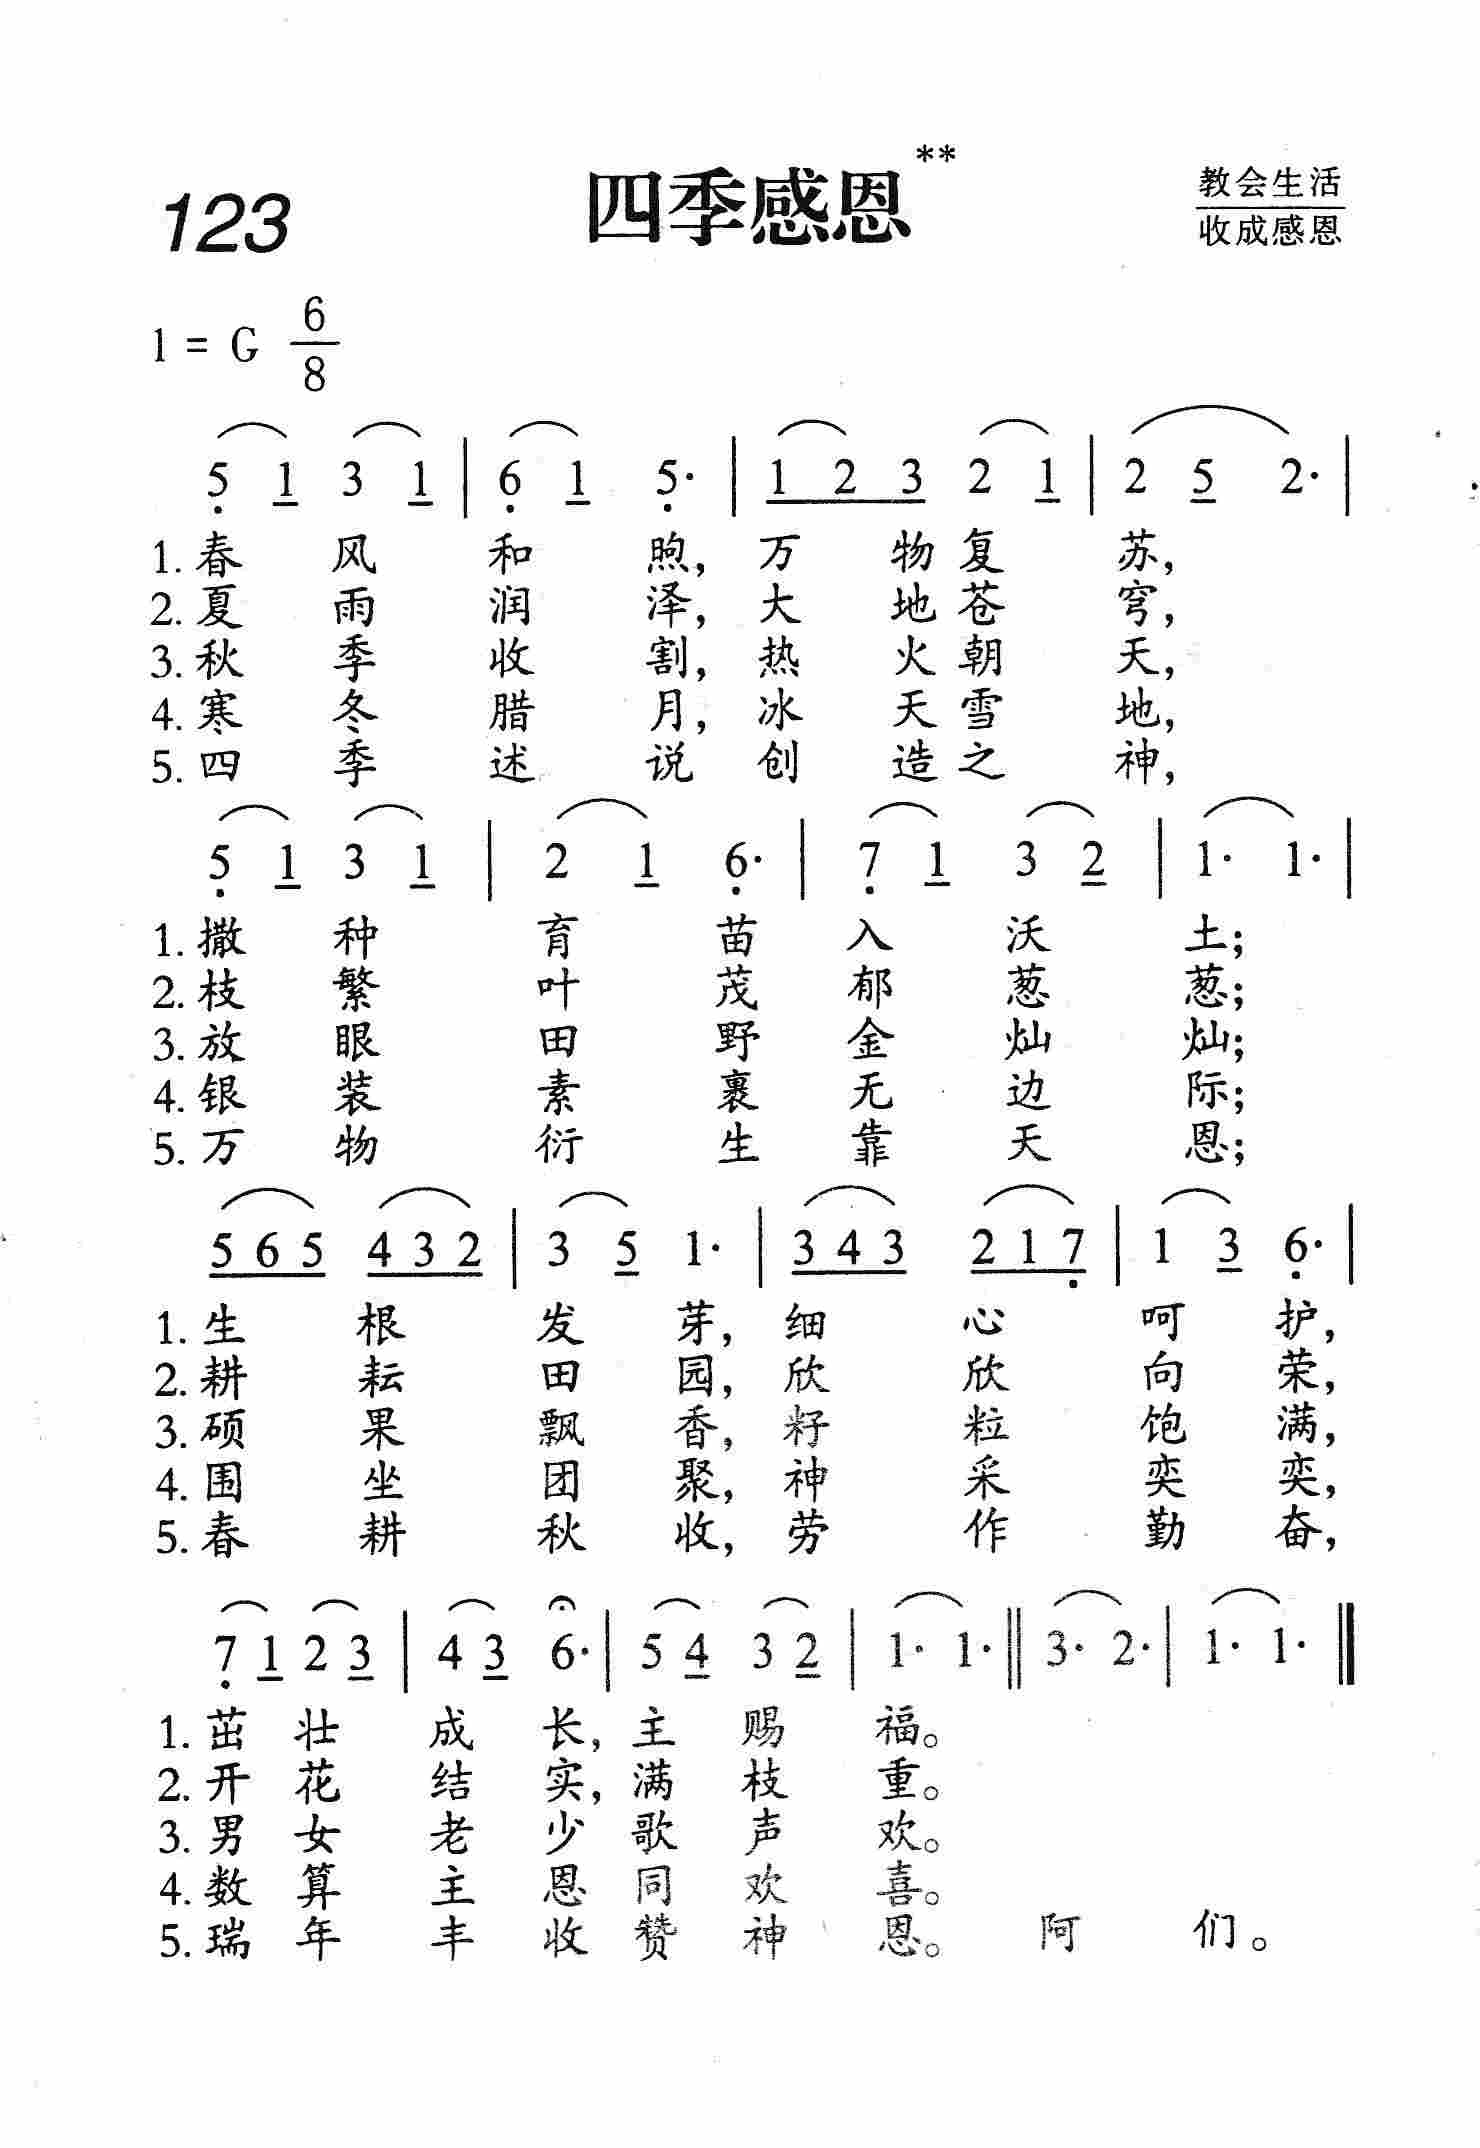 123 四季感恩** 教会生活
收成感恩
1 = G 6/8
5 1 3 1 | 6 1 5· | 1 2 3 2 1 | 2 5 2· |
1. 春风和煦，万物复苏，
2. 夏雨润泽，大地苍穹，
3. 秋季收割，热火朝天，
4. 寒冬腊月，冰天雪地，
5. 四季述说创造之神，
5 1 3 1 | 2 1 6· | 7 1 3 2 | 1· 1· |
1. 撒种育苗入沃土；
2. 枝繁叶茂郁葱葱；
3. 放眼田野金灿灿；
4. 银装素裹无边际；
5. 万物衍生靠天恩；
5 6 5 4 3 2 | 3 5 1· | 3 4 3 2 1 7 | 1 3 6· |
1. 生根发芽，细心呵护，
2. 耕耘田园，欣欣向荣，
3. 硕果飘香，籽粒饱满，
4. 围坐团聚，神采奕奕，
5. 春耕秋收，劳作勤奋，
7 1 2 3 | 4 3 6· | 5 4 3 2 | 1· 1· || 3· 2· | 1· 1· ||
1. 茁壮成长，主赐福。
2. 开花结实，满枝重。
3. 男女老少歌声欢。
4. 数算主恩同欢喜。
5. 瑞年丰收赞神恩。阿们。